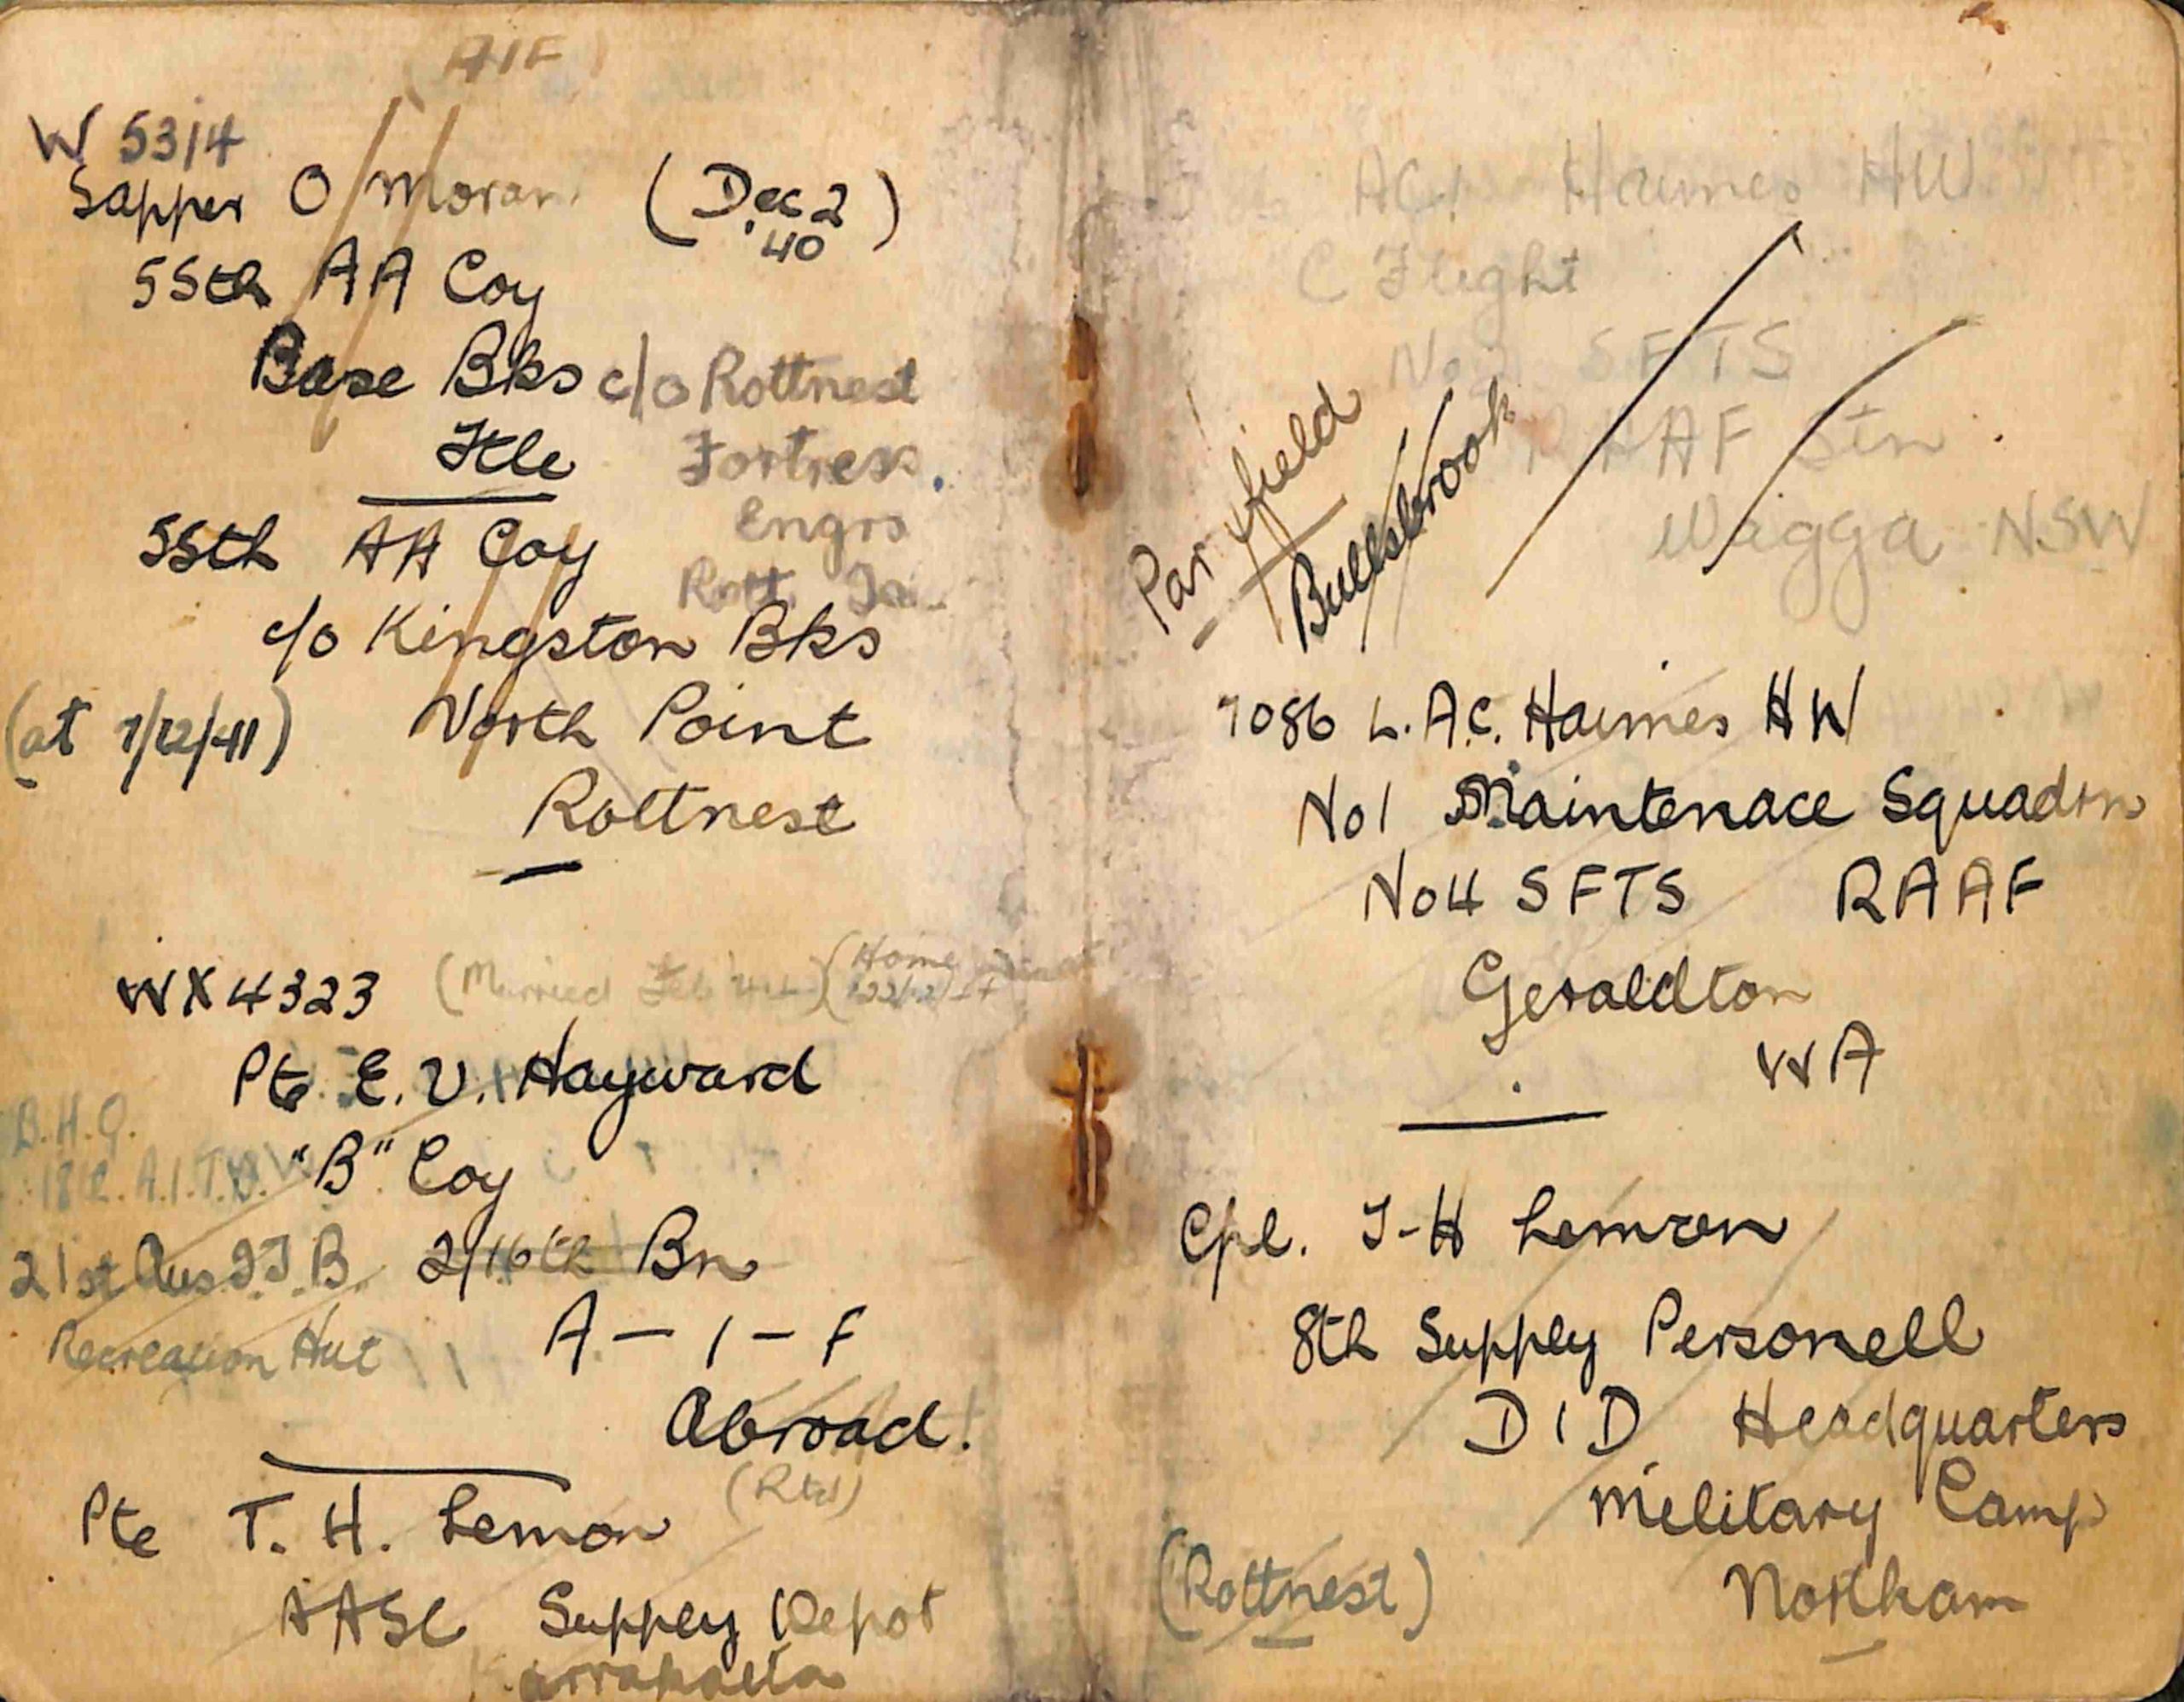 (AIF)
W 5314
Sapper O Moran (Dec 2
40)
55th AA Coy
Base Bks c/o Rottnest
Ftle Fortress.
Engrs
55th AA Coy
Rott.
c/o Kingston Bks
(at 7/12/41) North Point
Rottnest
WX4323 (Married Feb 44) (Home
Pte E. V. Hayward
B.H.Q.
"B" Coy
A.I.T.B.
21st Aus I.T.B. 2/16th Bn
Recreation Hut A-I-F
Abroad!
(Rtd)
Pte T. H. Lemon
AASC Supply Depot
Karrakatta
AC1 Haimes HW
C Flight
No 2 SFTS
RAAF Stn
Wagga NSW
Parafield
Bullsbrook
7086 L.A.C. Haimes HW
No 1 Maintenace Squadrn
No 4 SFTS RAAF
Geraldton
WA
Cpl. T-H Lemon
8th Supply Personell
DID Headquarters
Military Camp
(Rottnest) Northam